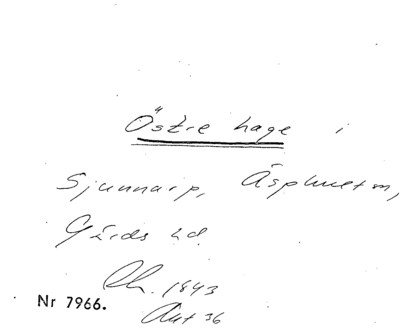 Östre hage i
Sjunnarp, Äsphult sn,
Gärds hd.
Ch. 1843
Akt 36
Nr 7966.